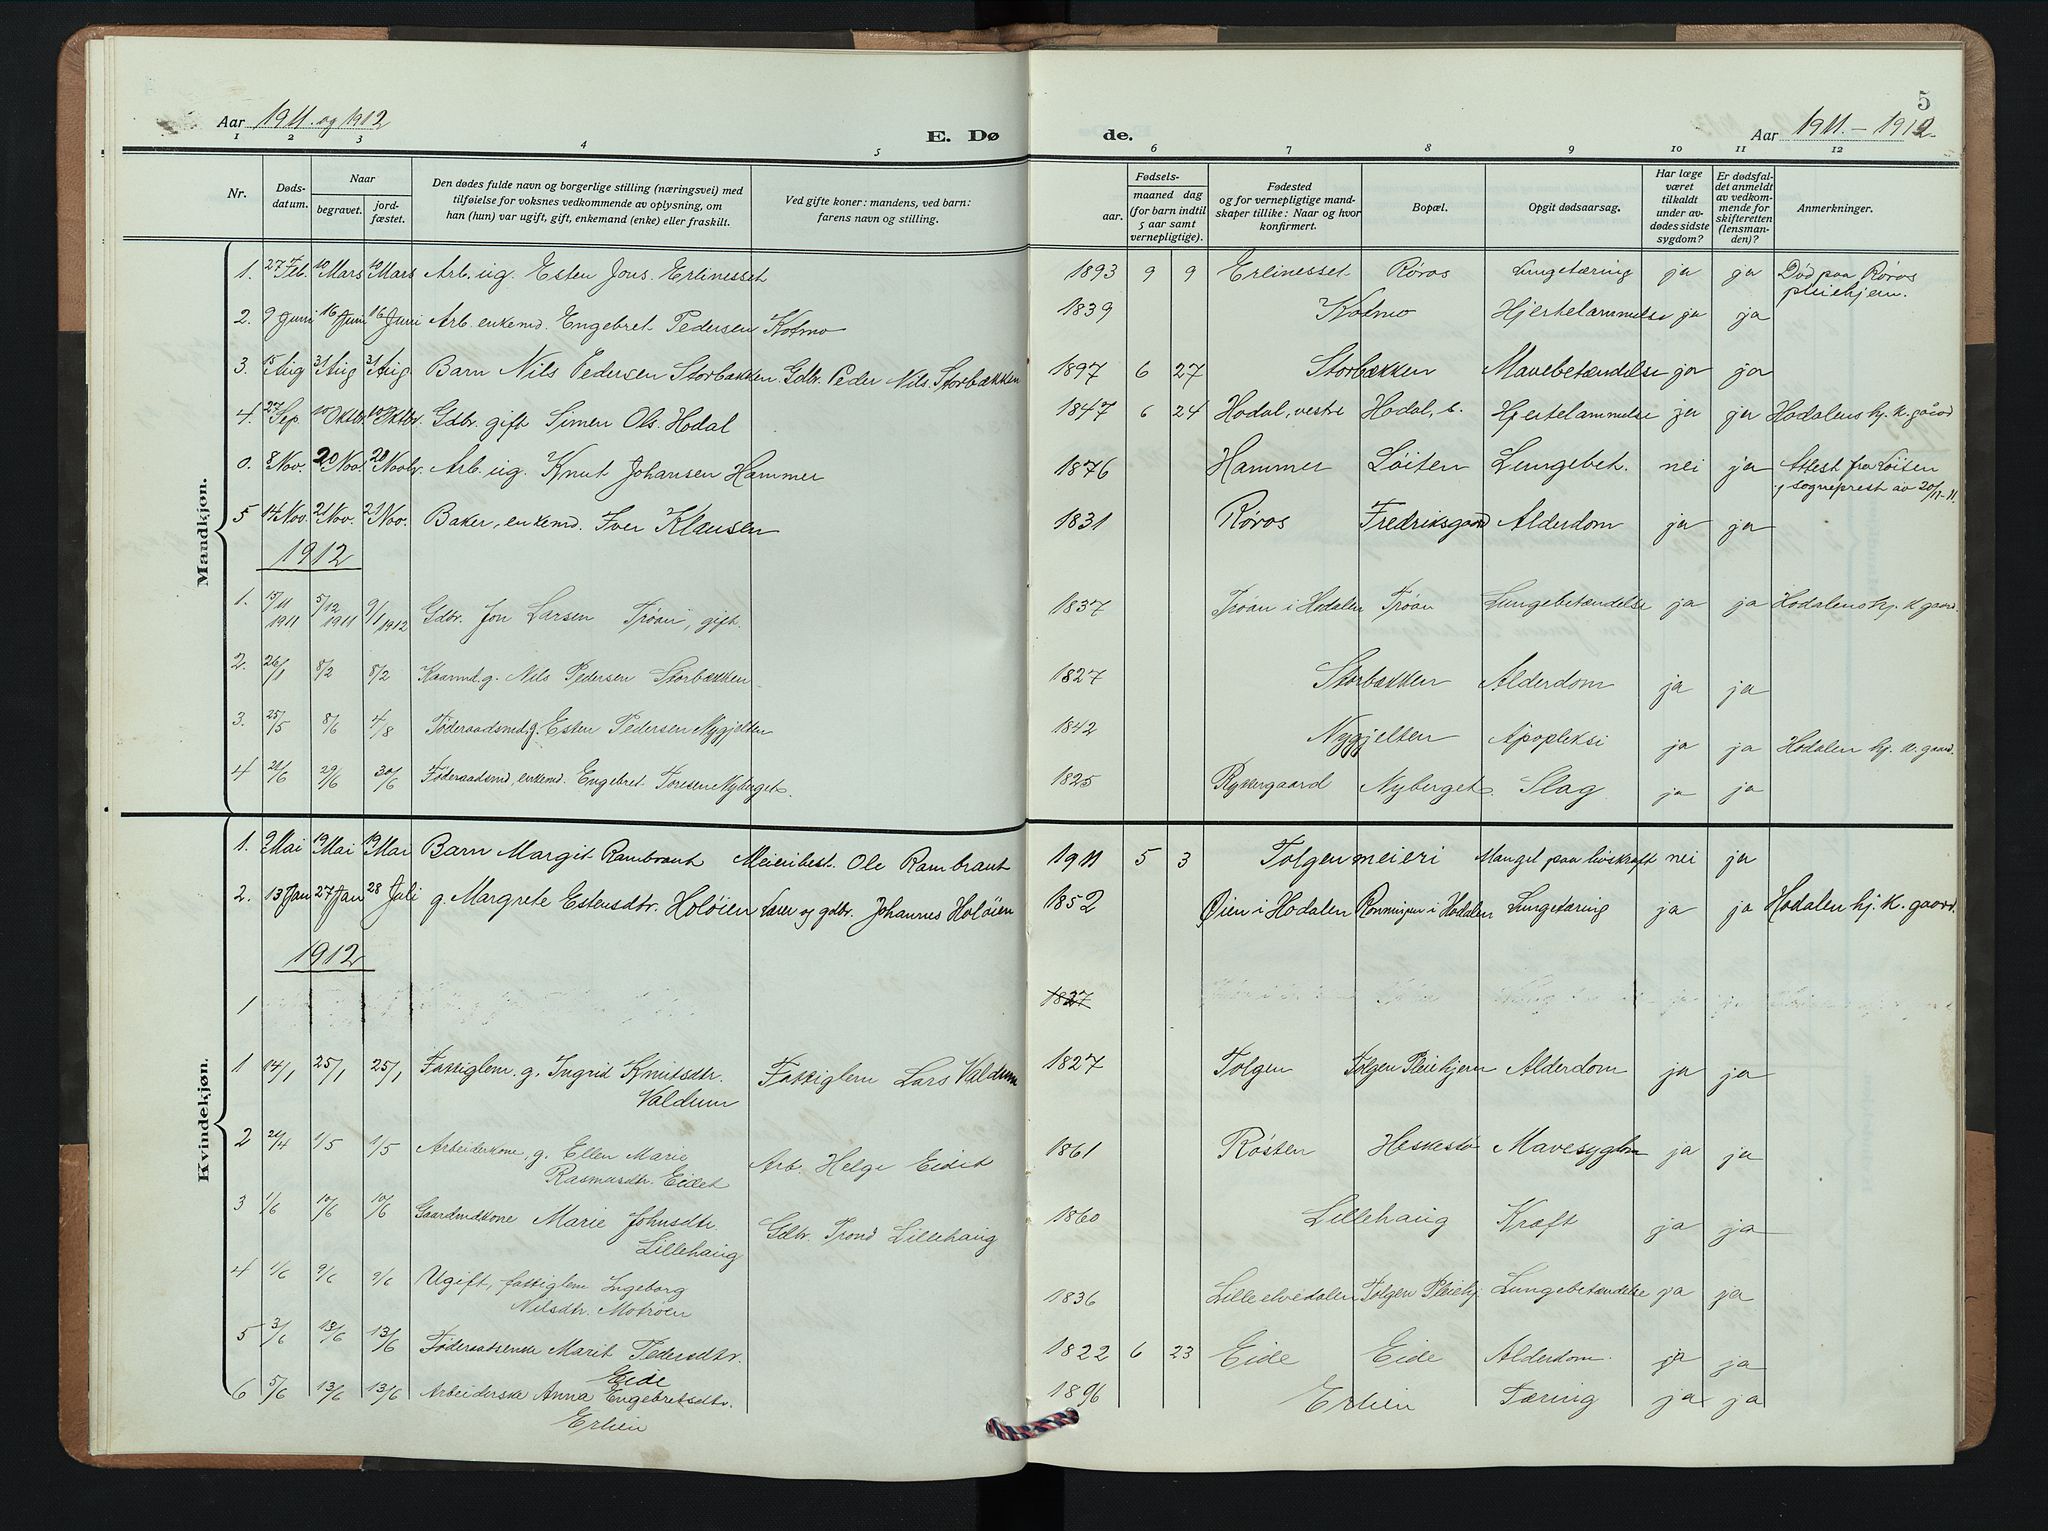 Aar 1911. og 1912
E. Dø
de.
5
Aar 1911. – 1912.
1 2 3 4 5 6 7 8 9 10 11 12
Nr.
Døds-
datum.
Naar
begravet.
jord-
fæstet.
Den dødes fulde navn og borgerlige stilling (næringsvei) med
tilføielse for voksnes vedkommende av oplysning, om
han (hun) var ugift, gift, enkemand (enke) eller fraskilt.
Ved gifte koner: mandens, ved barn:
farens navn og stilling.
Fødsels-
aar.
maaned dag
(for barn indtil
5 aar samt
vernepligtige).
Fødested
og for vernepligtige mand-
skaper tillike: Naar og hvor
konfirmert.
Bopæl.
Opgit dødsaarsag.
Har læge
været
tilkaldt
under av-
dødes sidste
sygdom?
Er dødsfal-
det anmeldt
av vedkom-
mende for
skifteretten
(lensman-
den)?
Anmerkninger.
Mandkjøn.
1. 27 Feb. 10 Mars 10 Mars Arb. ug. Esten Jons. Erlinesset 1893 9 9 Erlinesset Røros Lungetæring ja ja Død paa Røros
pleiehjem.
2. 9 Juni 16 Juni 16 Juni Arb. enkemd. Engebret Pedersen Kotmo 1839 Kotmo Hjertelammelse ja ja
3. 15 Aug 31 Aug 31 Aug. Barn Nils Pedersen Storbækken. Gdbr. Peder Nils. Storbækken 1897 6 27 Storbækken Mavebetændelse ja ja
4. 27 Sep. 10 Oktbr. 10 Oktbr. Gdbr. gift Simen Ols. Hodal 1847 6 24 Hodal, vestre Hodal, v. Hjertelammelse ja ja Hodalens kj. k. gaard
0. 8 Nov. 20 Nov. 20 Novbr. Arb. ug. Knut Johansen Hammer 1876 Hammer Løiten Lungebet. nei ja Attest fra Løiten
sogneprest av 20/11-11.
5 14 Nov. 21 Nov. 21 Nov. Baker, enkemd. Iver Klausen 1831 Røros Fredriksgaard Alderdom ja ja
1912
1. 15/11 1911 5/12 1911 9/1 1912 Gdbr. Jon Larsen Trøan, gift. 1837 Trøan i Hodalen Trøan Lungebetændelse ja ja Hodalens kj. k. gaard.
2. 26/1 8/2 8/2 Kaarmd. g. Nils Pedersen Storbækken 1827 Storbækken Alderdom ja ja
3. 25/5 8/6 4/8 Føderaadsmd. g. Esten Pedersen Nygjelten 1842 Nygjelten Apopleksi ja ja Hodalen kj. k. gaard.
4 21/6 29/6 30/6 Føderaadsmd, enkemd. Engebret Toresen Nyberget. 1825 Rykkergaard Nyberget. Slag ja ja
Kvindekjøn.
1. 9 Mai 19 Mai 19 Mai Barn Margit Rambraut Meieribest. Ole Rambraut 1911 5 3 Tolgen meieri Mangel paa livskraft nei ja
2. 13 Jan 27 Jan 28 Juli g. Margrete Estensdtr. Holøien Lærer og gdbr. Johannes Holøien 1852 Øien i Hodalen Rønningen i Hodalen Lungetæring ja ja Hodalen kj. k. gaard.
1912
1 1827
1 14/1 25/1 25/1 Fattiglem. g. Ingrid Knutsdtr. Fattiglem Lars Valdum 1827 Tolgen Tolgen Pleiehjem Alderdom ja ja
Valdum
2 21/4 1/5 1/5 Arbeiderkone, g. Ellen Marie Arb. Helge Eidet 1861 Røsten Heskestø Mavesygdom ja ja
Rasmusdtr. Eidet
3 1/6 10/6 10/6 Gaardmdkone Marie Johnsdtr. Gdbr. Trond Lillehaug 1860 Lillehaug Kræft ja ja
Lillehaug
4 1/6 9/6 9/6 Ugift, fattiglem Ingeborg 1836 Lille elvedalen Tolgen Pleiehj. Lungebetændelse ja ja
Nilsdtr. Motrøen
5 3/6 13/6 13/6 Føderaadsenke Marit Pedersdtr. 1822 6 23 Eide Eide Alderdom. ja ja
Eide
6 5/6 13/6 13/6 Arbeiderske Anna Engebretsdtr. 1896 Erlien Tæring ja ja
Erlien